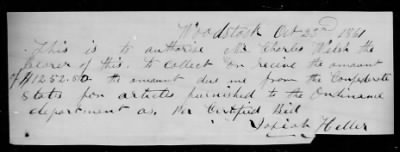 Woodstock Oct 23rd 1861
This is to authorise Mr Charles Welsh the
bearer of this. to collect on receive the amount
of $1252.50 the amount due me from the Confederate
States for articles furnished to the Ordinance
department as. Per Certified Bill
Josiah Heller